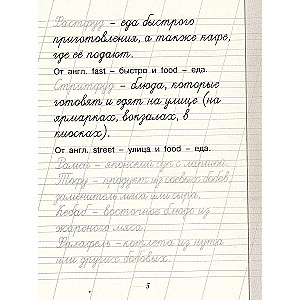 Фастфуд – еда быстрого
приготовления, а также кафе,
где её подают.
От англ. fast – быстро и food – еда.
Стритфуд – блюда, которые
готовят и едят на улице (на
ярмарках, вокзалах, в
киосках).
От англ. street – улица и food – еда.
Рамен – японский суп с лапшой.
Тофу – продукт из соевых бобов,
заменитель мяса или сыра.
Кебаб – восточное блюдо из
жареного мяса.
Фалафель – котлета из нута
или других бобовых.
5